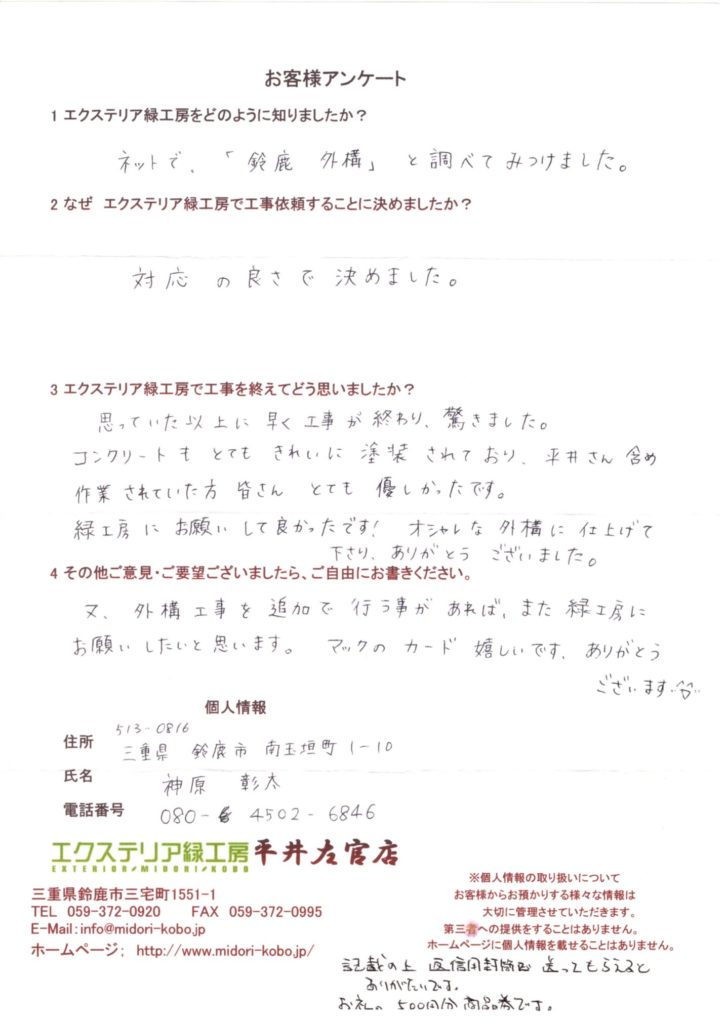 お客様アンケート
1 エクステリア緑工房をどのように知りましたか？
ネットで、「鈴鹿 外構」と調べてみつけました。
2 なぜ エクステリア緑工房で工事依頼することに決めましたか？
対応の良さで決めました。
3 エクステリア緑工房で工事を終えてどう思いましたか？
思っていた以上に早く工事が終わり、驚きました。
コンクリートもとてもきれいに塗装されており、平井さん含め
作業されていた方皆さんとても優しかったです。
緑工房にお願いして良かったです! オシャレな外構に仕上げて
下さり、ありがとうございました。
4 その他ご意見・ご要望ございましたら、ご自由にお書きください。
又、外構工事を追加で行う事があれば、また緑工房に
お願いしたいと思います。 マックのカード嬉しいです、ありがとう
ございます
個人情報
住所 513-0816
三重県 鈴鹿市 南玉垣町 1-10
氏名 神原 彰太
電話番号 080-4502-6846
エクステリア緑工房 平井左官店
EXTERIOR/MIDORI/KOBO
三重県鈴鹿市三宅町1551-1
TEL 059-372-0920 FAX 059-372-0995
E-Mail：info@midori-kobo.jp
ホームページ； http://www.midori-kobo.jp/
※個人情報の取り扱いについて
お客様からお預かりする様々な情報は
大切に管理させていただきます。
第三者への提供をすることはありません。
ホームページに個人情報を載せることはありません。
記載の上 返信用封筒で送ってもらえると
ありがたいです。
お礼の 500円分商品券です。